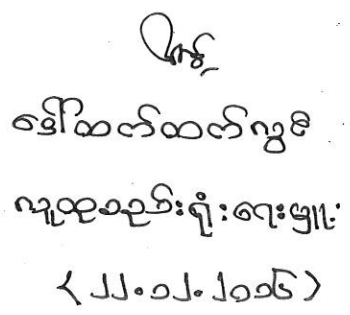 ဒေါ်ထက်ထက်လွင်
လူထုစည်းရုံးရေးမှူး
(၂၂.၁၂.၂၀၁၆)